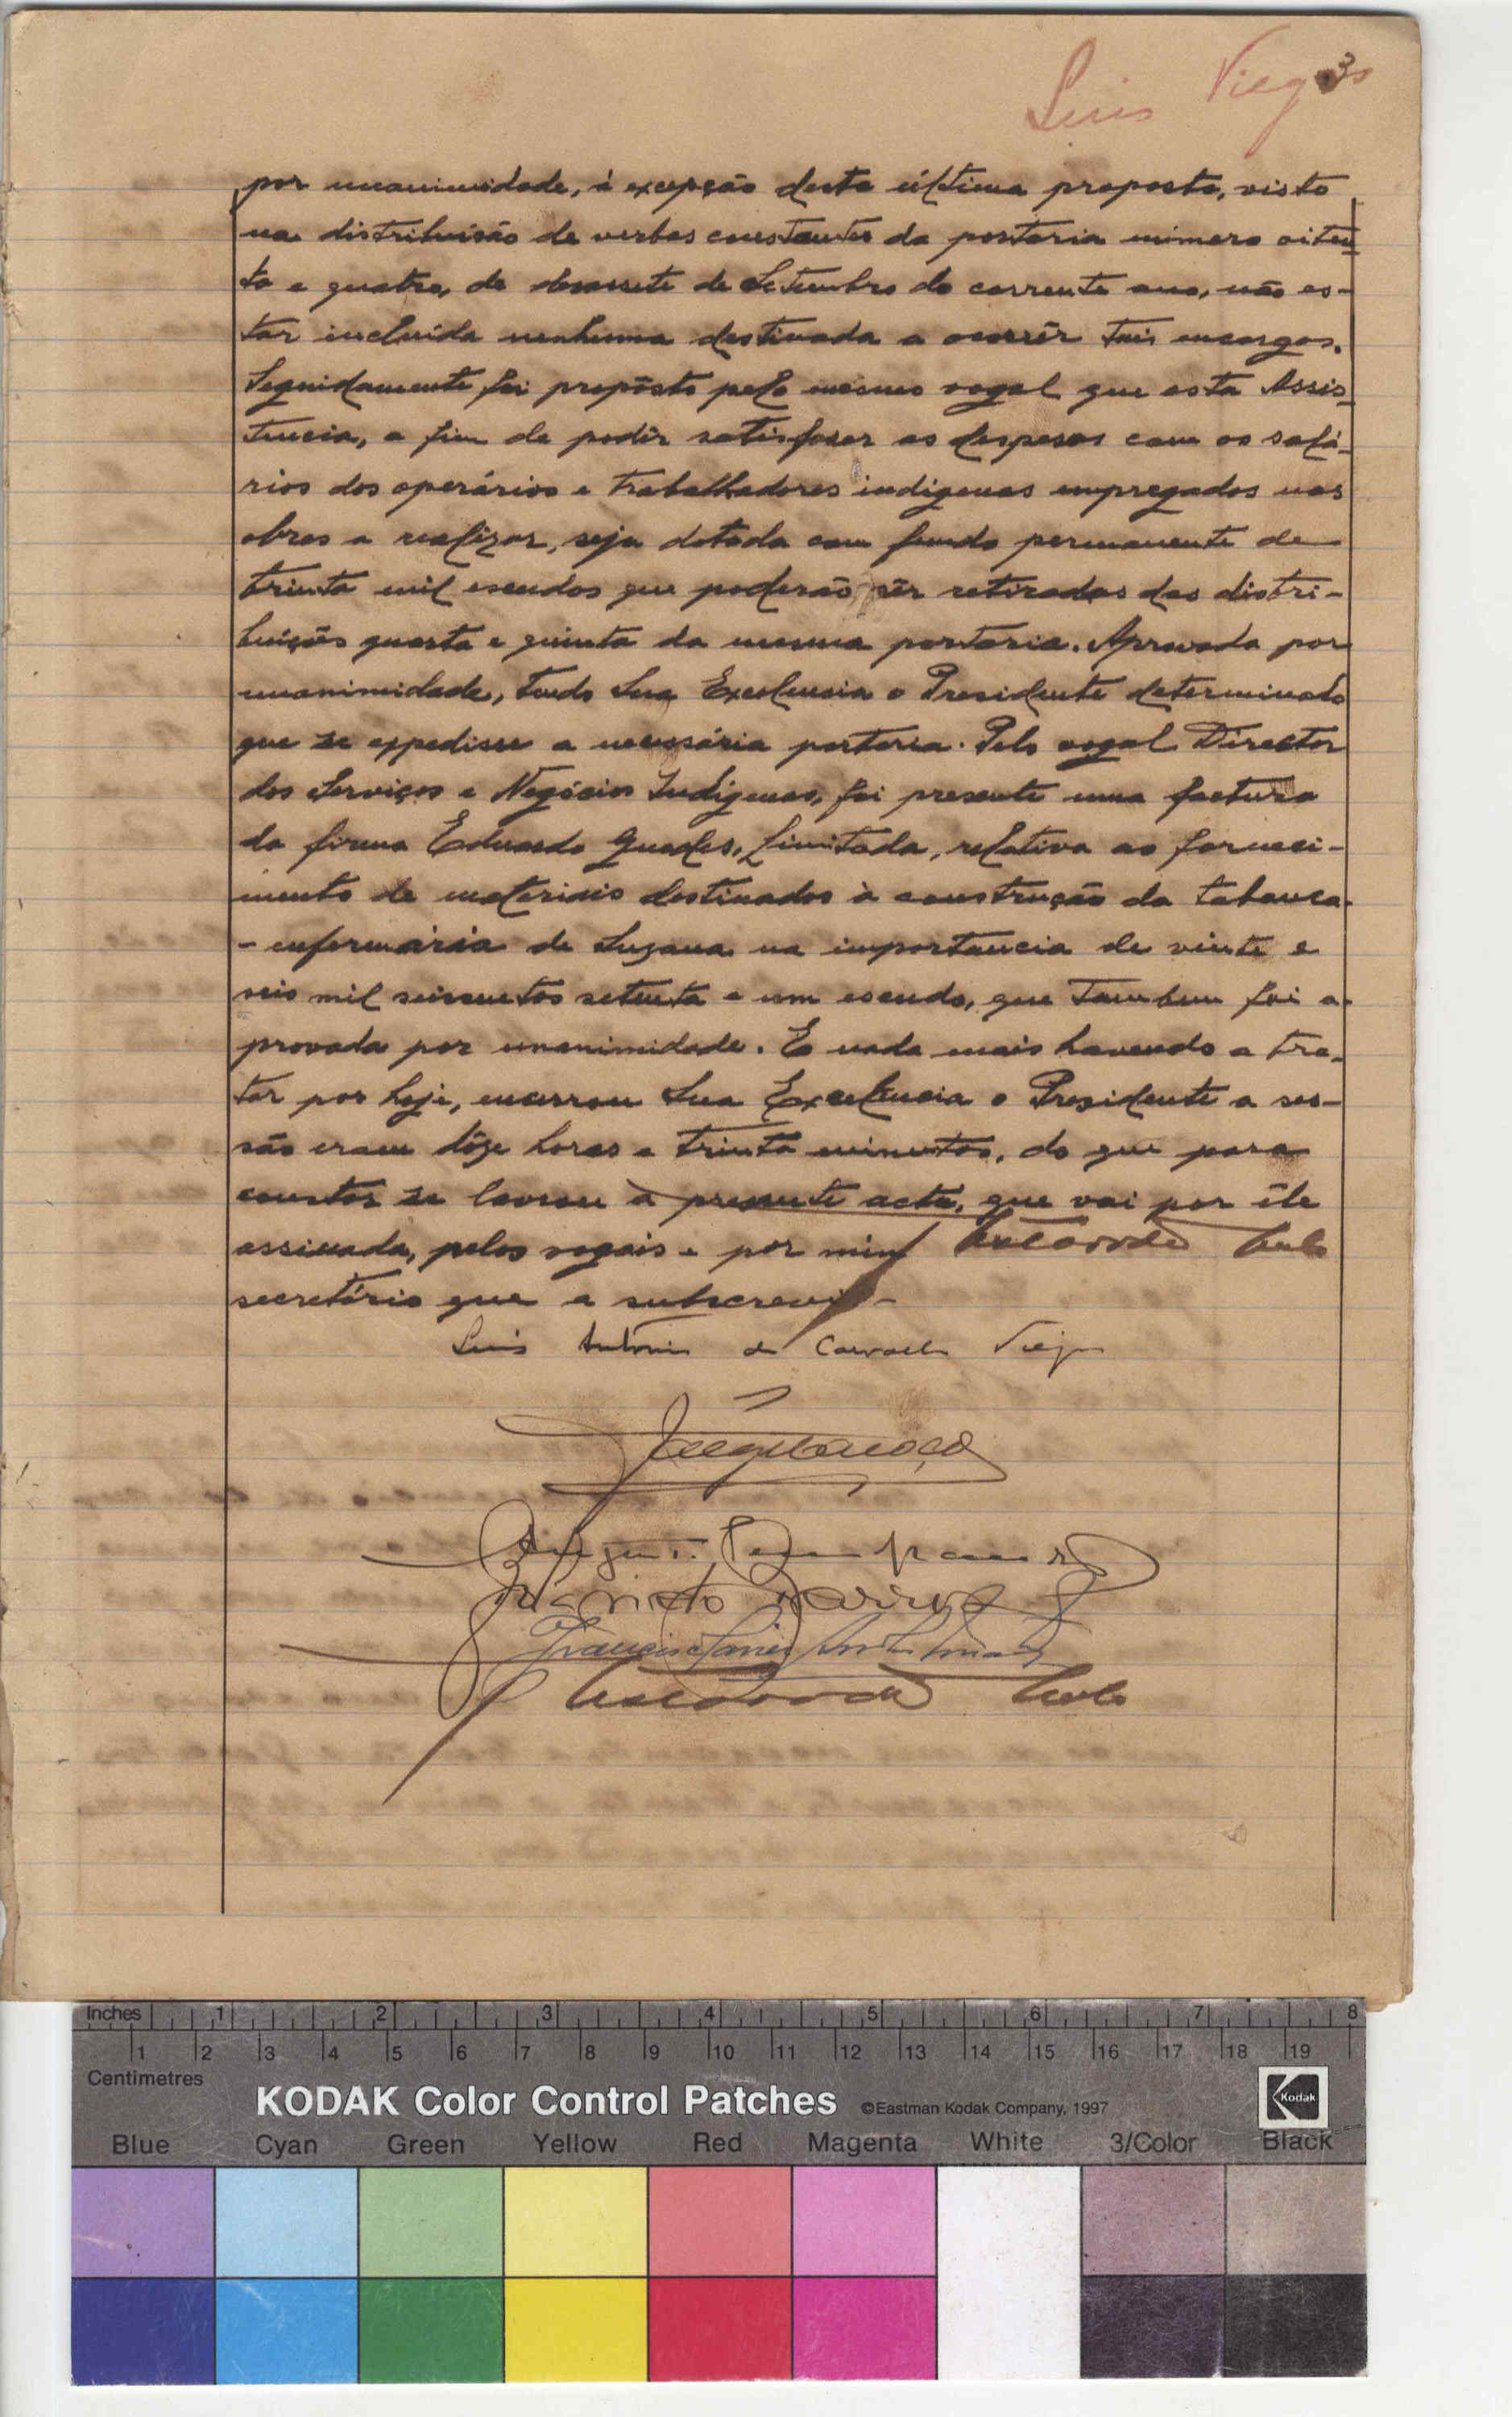 Luis Viegas
3
por unanimidade, à excepção desta última proposta, visto
na distribuisão de verbas constantes da portaria número oiten-
ta e quatro, de desassete de Setembro do corrente ano, não es-
tar incluída nenhuma destinada a ocorrêr tais encargos.
Seguidamente foi propôsto pelo mesmo vogal que esta Assis-
tencia, a fim de podêr satisfazer as despesas com os salá-
rios dos operários e trabalhadores indigenas empregados nas
obras a realizar, seja dotada com fundo permanente de
trinta mil escudos que poderão sêr retirados das distri-
buições quarta e quinta da mesma portaria. Aprovada por
unanimidade, tendo Sua Excelencia o Presidente determinado
que se expedisse a necessária portaria. Pelo vogal Director
dos Serviços e Negócios Indígenas, foi presente uma factura
da firma Eduardo Guedes, Limitada, relativa ao forneci-
mento de materiais destinados à construção da tabanca-
-enfermária de Suzana na importancia de vinte e
seis mil seiscentos setenta e um escudo, que tambem foi a-
provada por unanimidade. E nada mais havendo a tra-
tar por hoje, encerrou Sua Excelencia o Presidente a ses-
são eram dôze horas e trinta minutos, do que para
constar se lavrou a presente acta, que vai por êle
assinada, pelos vogais e por mim
secretário que a subscrevi-
Luis António de Carvalho Viegas
Inches 1 2 3 4 5 6 7 8
1 2 3 4 5 6 7 8 9 10 11 12 13 14 15 16 17 18 19
Centimetres
KODAK Color Control Patches ©Eastman Kodak Company, 1997
Kodak
Blue Cyan Green Yellow Red Magenta White 3/Color Black